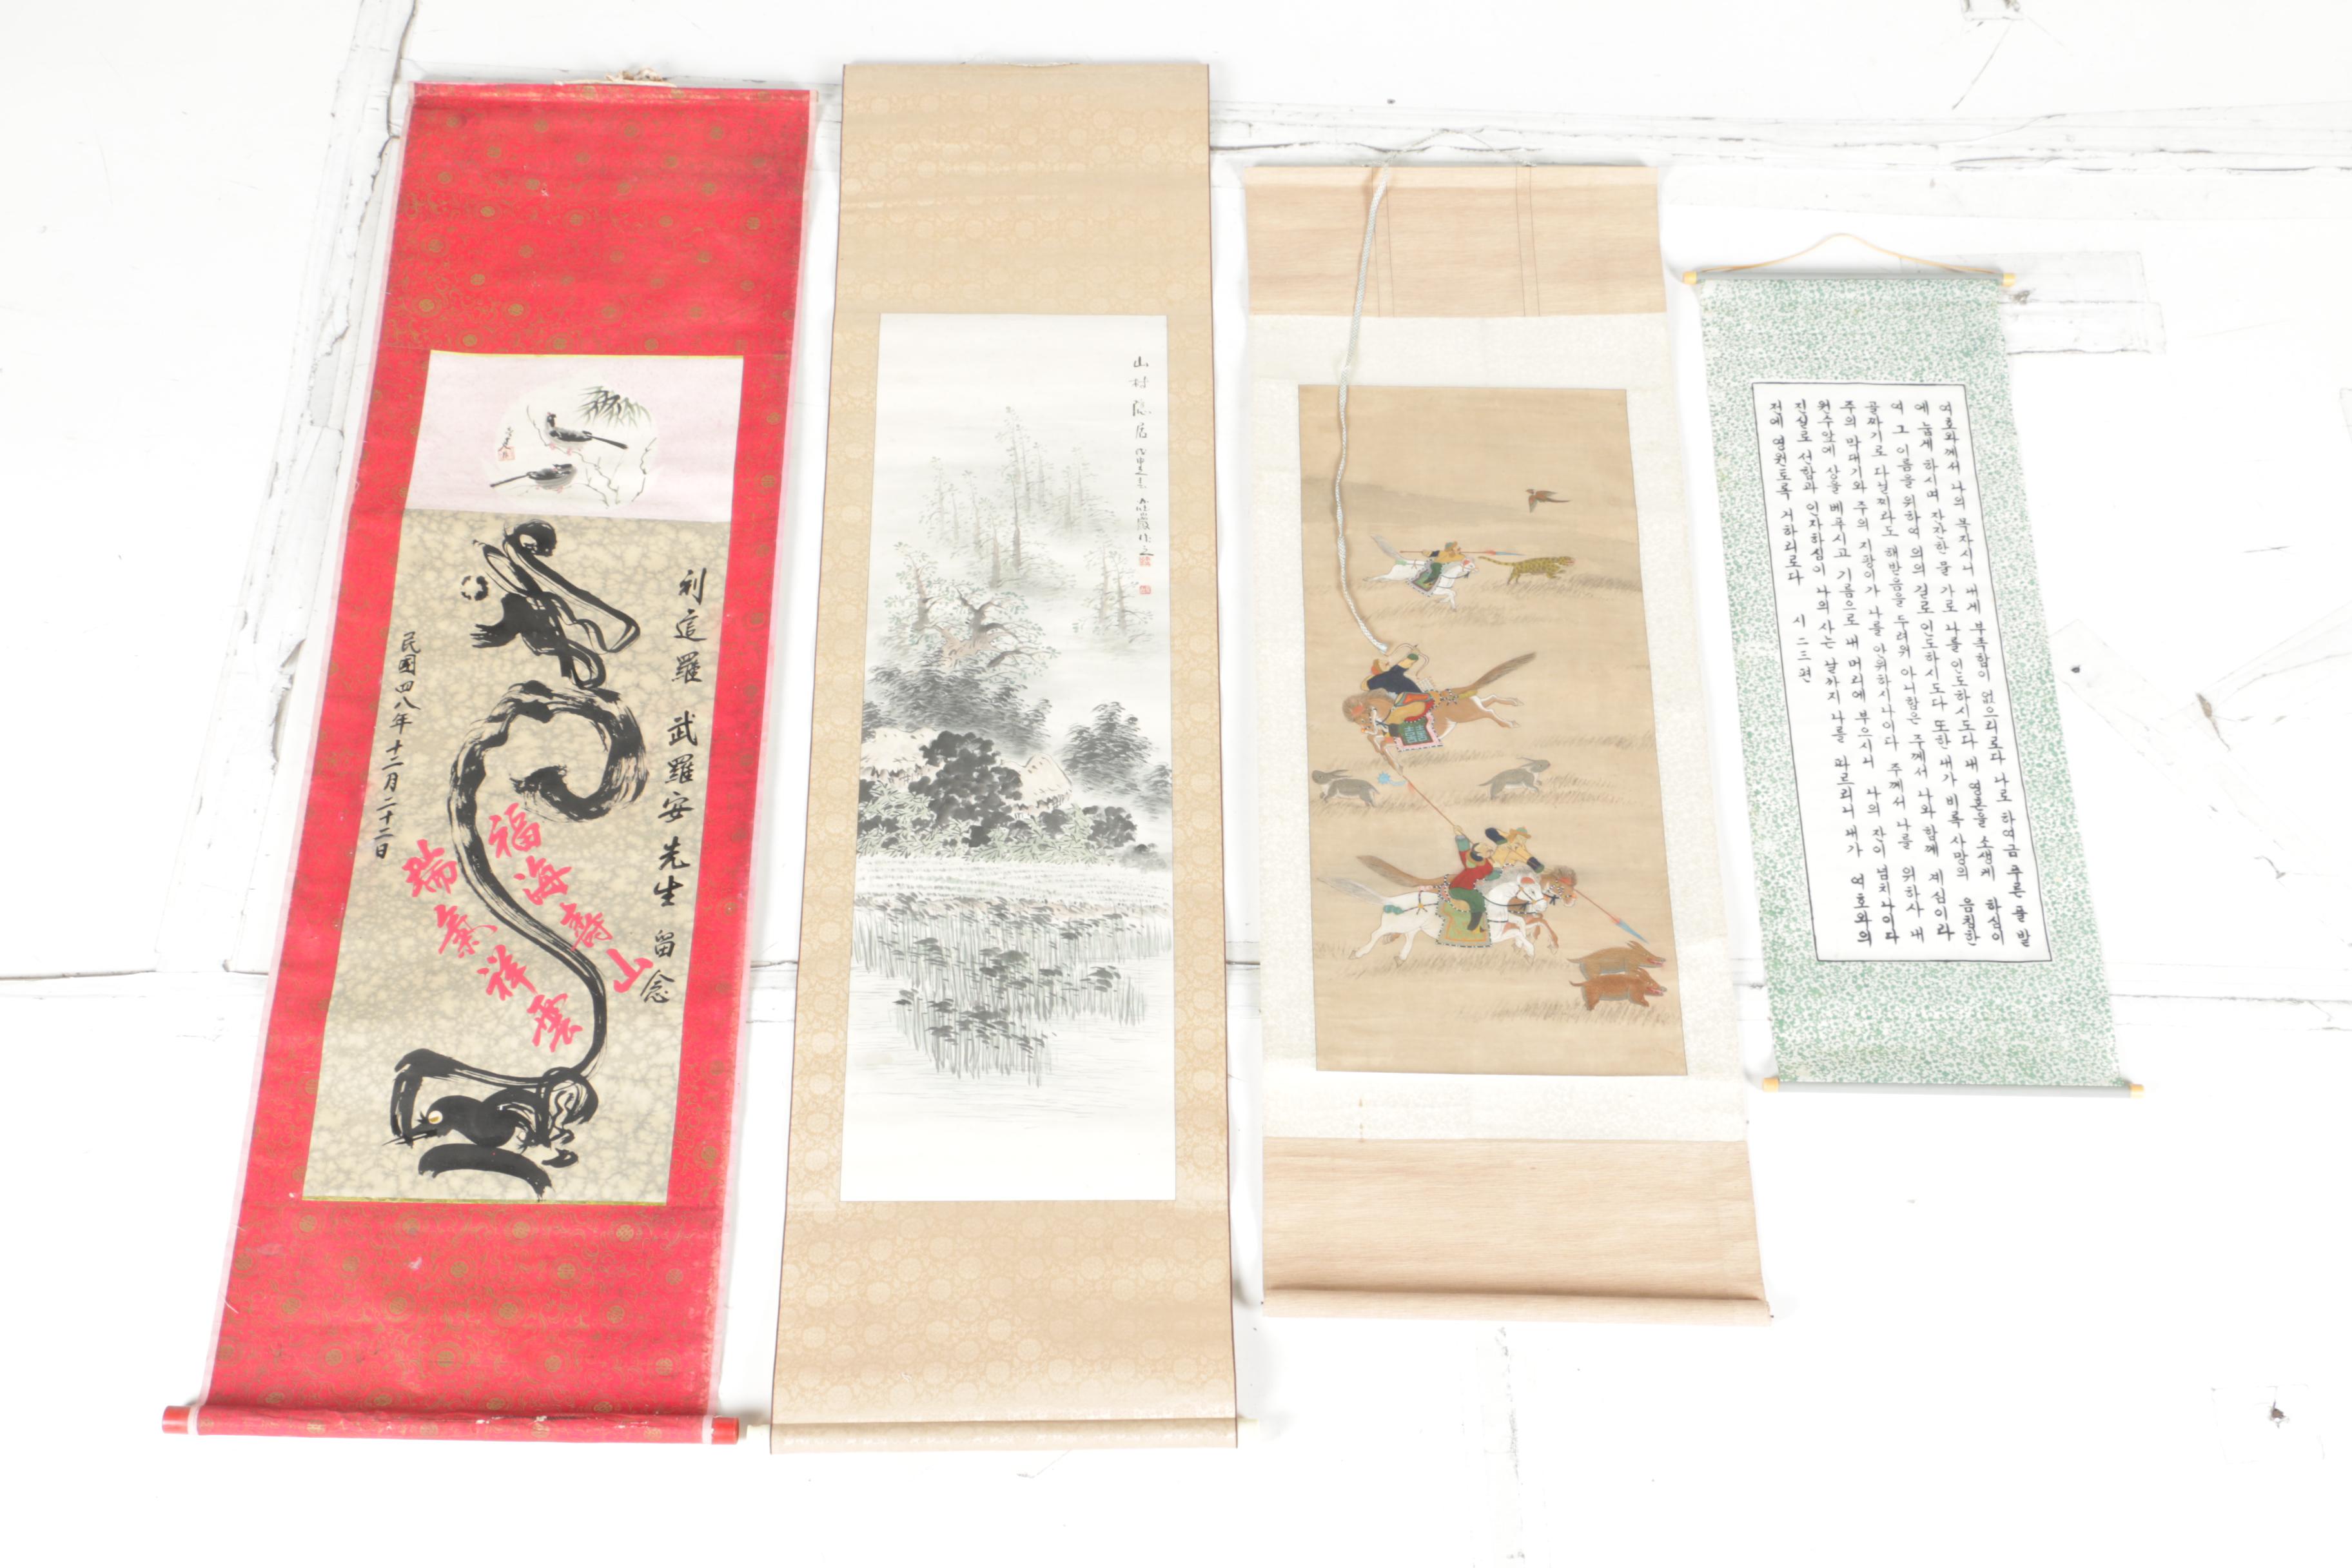 利這羅 武羅安先生 留念
福海壽山
瑞氣祥雲
民國四八年十二月二十二日
山村隠居
여호와께서 나의 목자시니 내게 부족함이 없으리로다 나로 하여금 푸른 풀 밭
에 눕게 하시며 잔잔한 물 가로 나를 인도하시도다 내 영혼을 소생케 하심이
여 그 이름을 위하여 의의 길로 인도하시도다 또한 내가 비록 사망의 음침한
골짜기로 다닐찌라도 해받음을 두려워 아니함은 주께서 나와 함께 계심이라
주의 막대기와 주의 지팡이가 나를 안위하시나이다 주께서 나를 위하사 내
원수앞에 상을 베푸시고 기름으로 내 머리에 부으시니 나의 잔이 넘치나이다
진실로 선함과 인자하심이 나의 사는 날까지 나를 따르리니 내가 여호와의
전에 영원도록 거하리로다 시 二三편